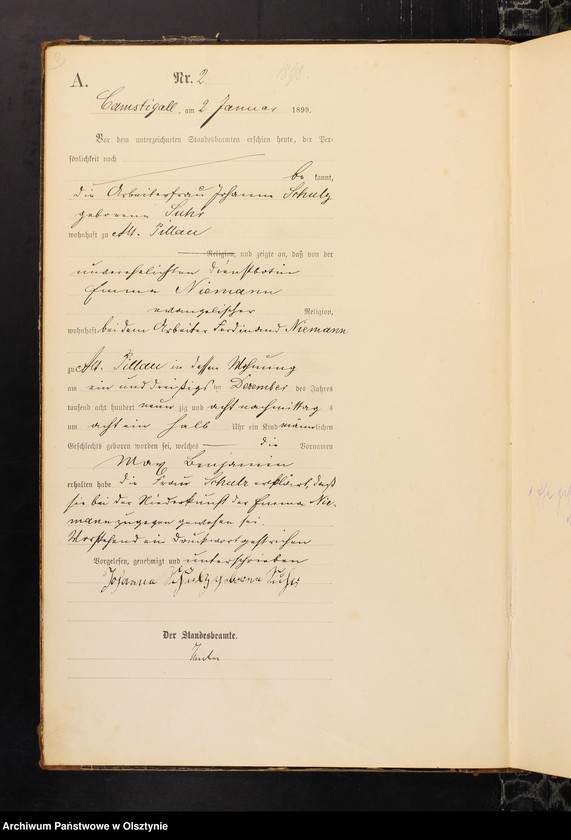 3
1898.
A. Nr. 2
Camstigall, am 2 Januar 1899.
Vor dem unterzeichneten Standesbeamten erschien heute, der Per-
sönlichkeit nach
be kannt,
die Arbeiterfrau Johanna Schulz
geborene Suhr
wohnhaft zu Alt. Pillau
Religion, und zeigte an, daß von der
unverehelichten Dienstbotin
Emma Niemann
evangelischer Religion,
wohnhaft bei dem Arbeiter Ferdinand Niemann
zu Alt. Pillau in dessen Wohnung
am ein und dreißigsten Dezember des Jahres
tausend acht hundert neun zig und acht nachmittag s
um acht ein halb Uhr ein Kind männlichen
Geschlechts geboren worden sei, welches die Vornamen
Max Benjamin
erhalten habe die Frau Schulz erklärt, daß
sie bei der Niederkunft der Emma Nie-
mann zugegen gewesen sei.
Vorstehend ein Druckwort gestrichen
Vorgelesen, genehmigt und unterschrieben
Johanna Schulz geborene Suhr
Der Standesbeamte.
Archiwum Państwowe w Olsztynie